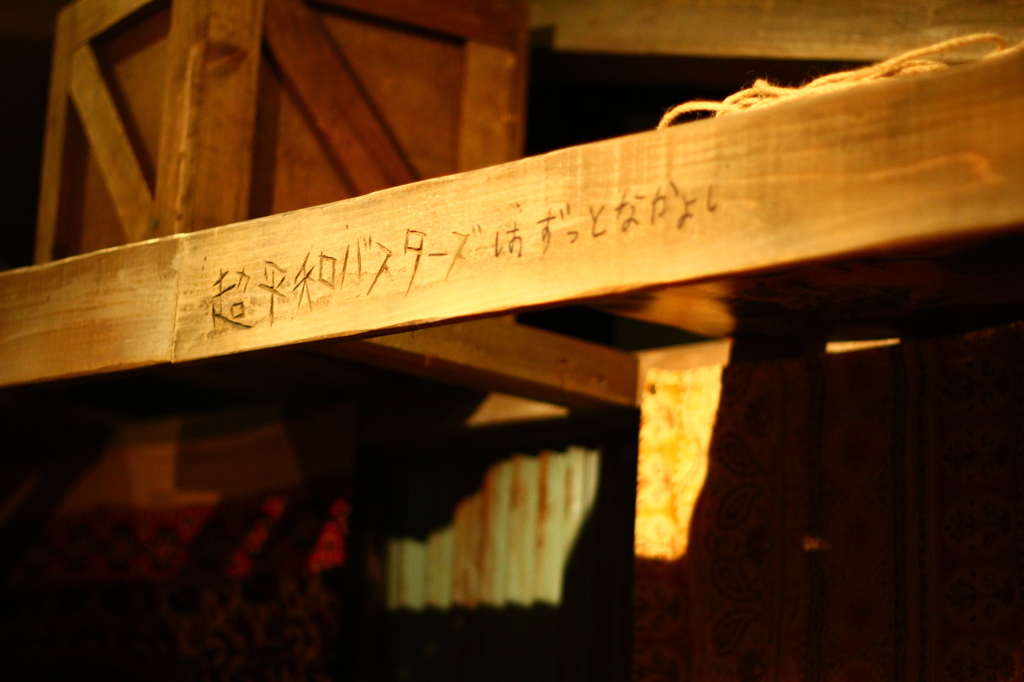 超平和バスターズはずっとなかよし